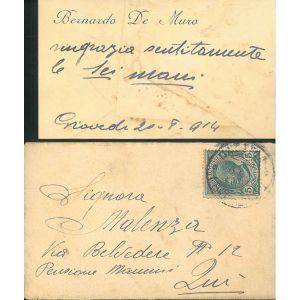 Bernardo De Muro
ringrazia sentitamente
le Sei mani
Giovedi 20-8-914
Signora
Malenza
Via Belvedere № 12
Pensione
Qui